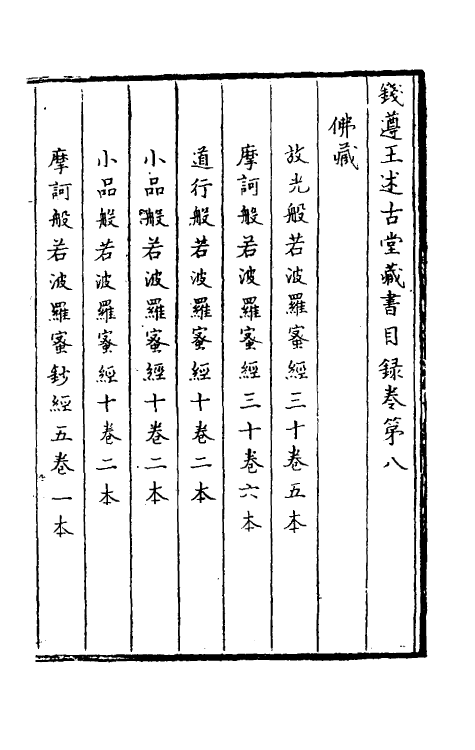 錢遵王述古堂藏書目録卷第八
佛藏
放光般若波羅蜜經三十卷五本
摩訶般若波羅蜜經三十卷六本
道行般若波羅蜜經十卷二本
小品般若波羅蜜經十卷二本
小品般若波羅蜜經十卷二本
摩訶般若波羅蜜鈔經五卷一本